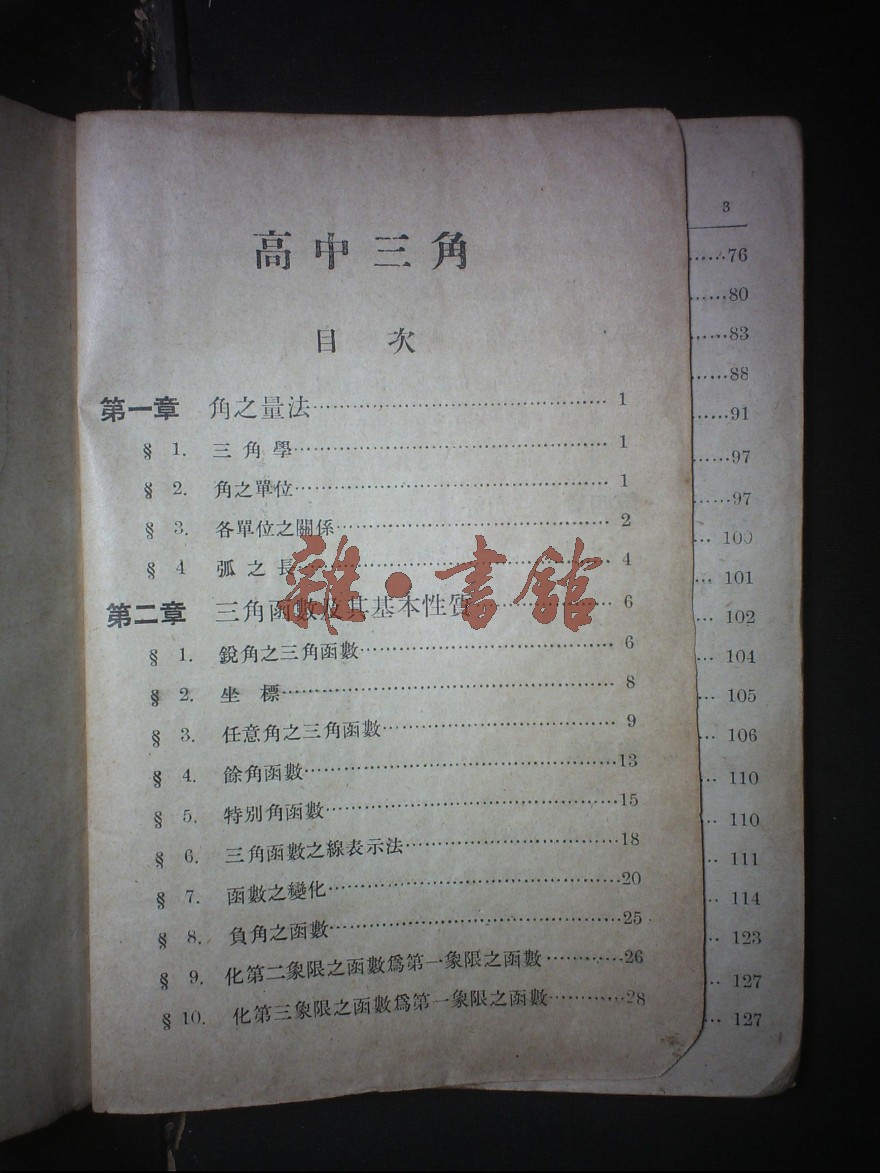 高中三角
目次
第一章 角之量法 1
§ 1. 三角學 1
§ 2. 角之單位 1
§ 3. 各單位之關係 2
§ 4 弧之長 4
第二章 三角函數及其基本性質 6
§ 1. 銳角之三角函數 6
§ 2. 坐標 8
§ 3. 任意角之三角函數 9
§ 4. 餘角函數 13
§ 5. 特別角函數 15
§ 6. 三角函數之線表示法 18
§ 7. 函數之變化 20
§ 8. 負角之函數 25
§ 9. 化第二象限之函數爲第一象限之函數 26
§ 10. 化第三象限之函數爲第一象限之函數 28
雜·書館
3
76
80
83
88
91
97
97
100
101
102
104
105
106
110
110
111
114
123
127
127